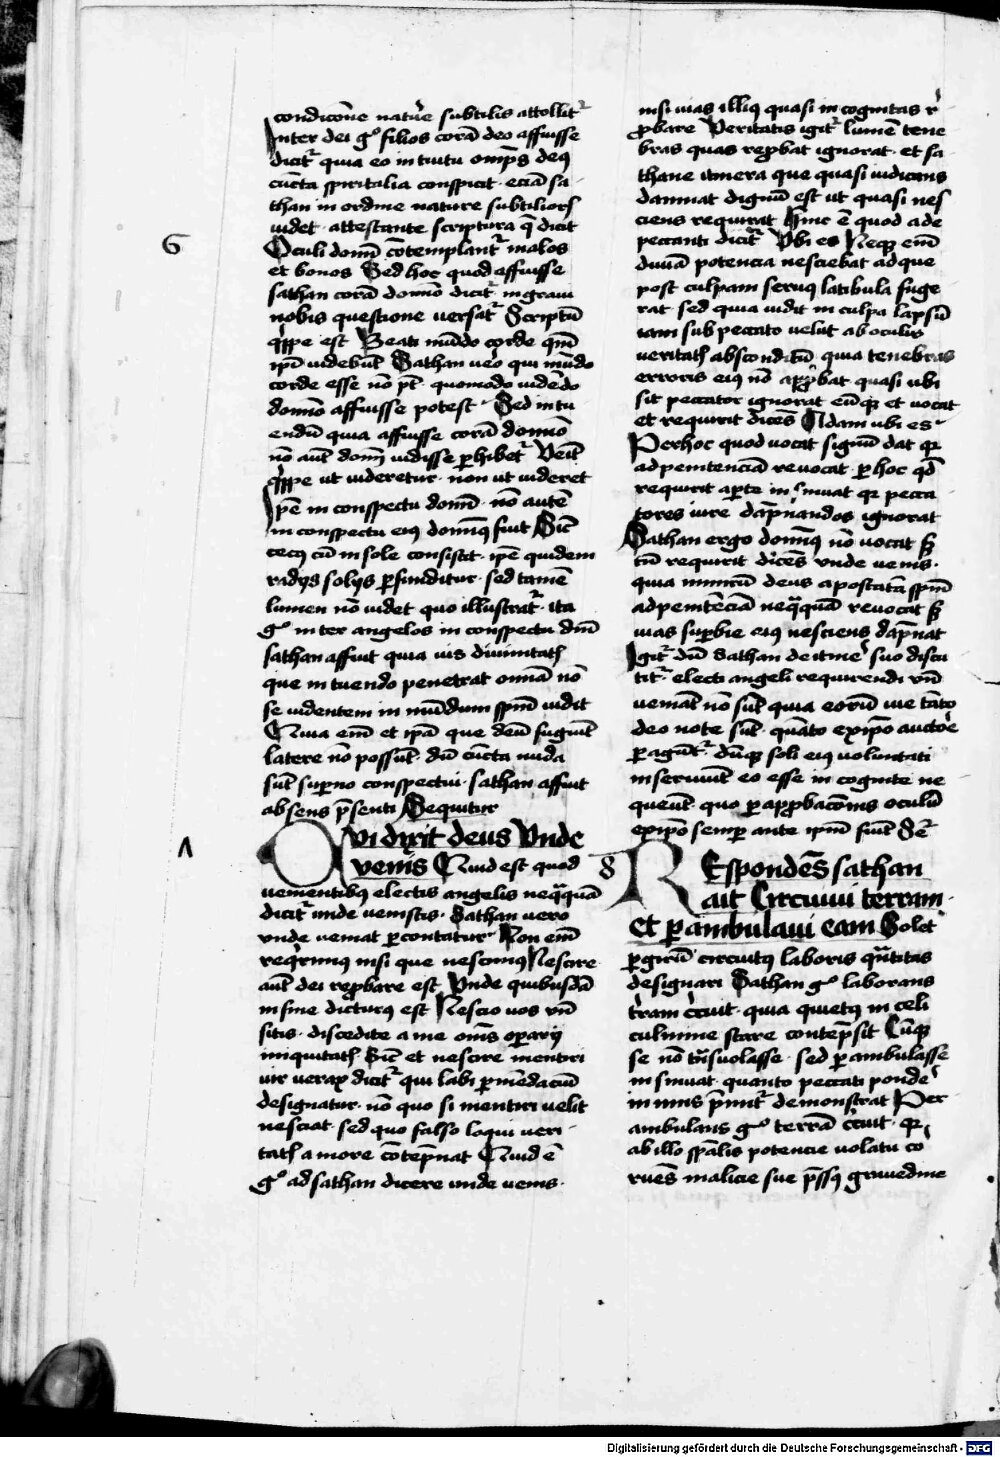 condicōne natur̄e subtilis attollit᷑
Inter dei gͦ filios corā deo affuisse
dicit᷑ quia eo intuitu om̄ps deꝰ
cūcta spiritalia conspicit · eciā sa
than in ordine nature subtilior̄
videt · attestante scriptura q̄ dicit
6
Oculi domī cōtemplant᷑ malos
et bonos Sed hoc quod affuisse
sathan corā domīo dicit᷑ in graui
nobis questione versat᷑ Scriptū
q̄ppe est Beati mūdo corde qm̄
ip̄i videbūt Sathan vēo qui mūdo
corde esse nō pt̄ · quomodo vidēdo
domīo affuisse potest · Sed intu
endū quia affuisse corā domīo
nō aūt domī vidisse ꝑhibet᷑ Venit
q̄ppe ut videretur · non ut videret
Ip̄e in conspectu domī · nō autē
in conspectu eiꝰ dominꝰ fuit Sic̄
cecꝰ cū in sole consistit · ip̄e quidem
radijs solijs ꝑfunditur · sed tamē
lumen nō videt quo illustrat᷑ · ita
gͦ inter angelos in conspectu dnī
sathan affuit quia vis diuinitatꝭ
que intuendo penetrat omnia nō
se videntem in mūndum spm̄ vidit
Quia em̄ et ip̄a que deū fugiūt
latere nō possūt · dū cūcta nuda
sūt suꝑno conspectui · sathan affuit
absens p̄senti Sequitur
Λ
Qvi dixit deus Vnde
venis Quid est quod
venientibus electis angelis neq̄quā
dicit᷑ vnde venistis · Sathan vero
vnde veniat ꝑcontatur Non em̄
req̄rimꝰ nisi que nescimꝰ Nescire
aūt dei reꝓbare est Vnde quibusdā
in fine dicturꝰ est Nescio vos vn̄
sitis · discedite a me om̄s oꝑarij
iniquitatꝭ Sic̄ et nescire mentiri
vir verax dicit᷑ qui labi ꝑ mēdaciū
designatur · nō quo si mentiri velit
nesciat · sed quo falso loqui veri
tatꝭ amore cōtēpnat Quid ē
gͦ ad sathan dicere vnde venis ·
nisi vias illiꝰ quasi incognitas r̄
ꝓbare Veritatis igit᷑ lumē tene
bras quas reꝓbat ignorat · et sa
thane itinera que quasi iudicans
damnat dignū est ut quasi nes
ciens requirat Hinc ē quod ade
peccanti dicit᷑ Vbi es Neqꝫ em̄
diuīa potencia nesciebat ad que
post culpam seruꝰ latibula fuge
rat sed quia vidit in culpa lapsū
iam sub peccato velut ab oculis
veritatꝭ absconditū quia tenebras
erroris eiꝰ nō aꝓbat quasi vbi
sit peccator ignorat eūqꝫ et vocat
et requirit dicēs Adam vbi es
Per hoc quod vocat signū dat qꝫ
ad penitenciā reuocat · ꝑ hoc qd̄
requirit aꝑte insinuat qꝫ pecca
tores iure dāpnandos ignorat
Sathan ergo dominꝰ nō vocat sꝫ
tm̄ requirit dicēs vnde venis ·
quia nimirū deus apostatā spm̄
ad penitēciā neq̄quā reuocat sꝫ
vias suꝑbie eiꝰ nesciens dāpnat
Igit᷑ dū Sathan de itine᷑ suo discu
tit᷑ · electi angeli requirendi vn̄
veniāt nō sūt quia eorū vie tāto
deo note sūt · quāto ex ip̄o auctōe
ꝑagūt᷑ · dūqꝫ soli eiꝰ voluntati
inseruiūt eo esse incognite ne
queūt · quo ꝑ approbacōnis oculū
ex ip̄o semꝑ ante ip̄m fiūt Sē
8
REspondēs sathan
ait Circuiui terram ·
Et ꝑambulaui eam Solet
ꝑ girū circuitꝰ laboris qūtitas
designari Sathan gͦ laborans
tr̄am cīcuit · quia quietꝰ in celi
culmine stare contēpsit Cūqꝫ
se nō trāsuolasse · sed ꝑambulasse
insinuat · quanto peccati ponde᷑
in imis p̄mit᷑ demonstrat Per
ambulans gͦ terrā cīcuit · qꝫ
ab illo spālis potencie volatu co
ruēs malicie sue p̄ssꝰ grauedine
Digitalisierung gefördert durch die Deutsche Forschungsgemeinschaft - DFG